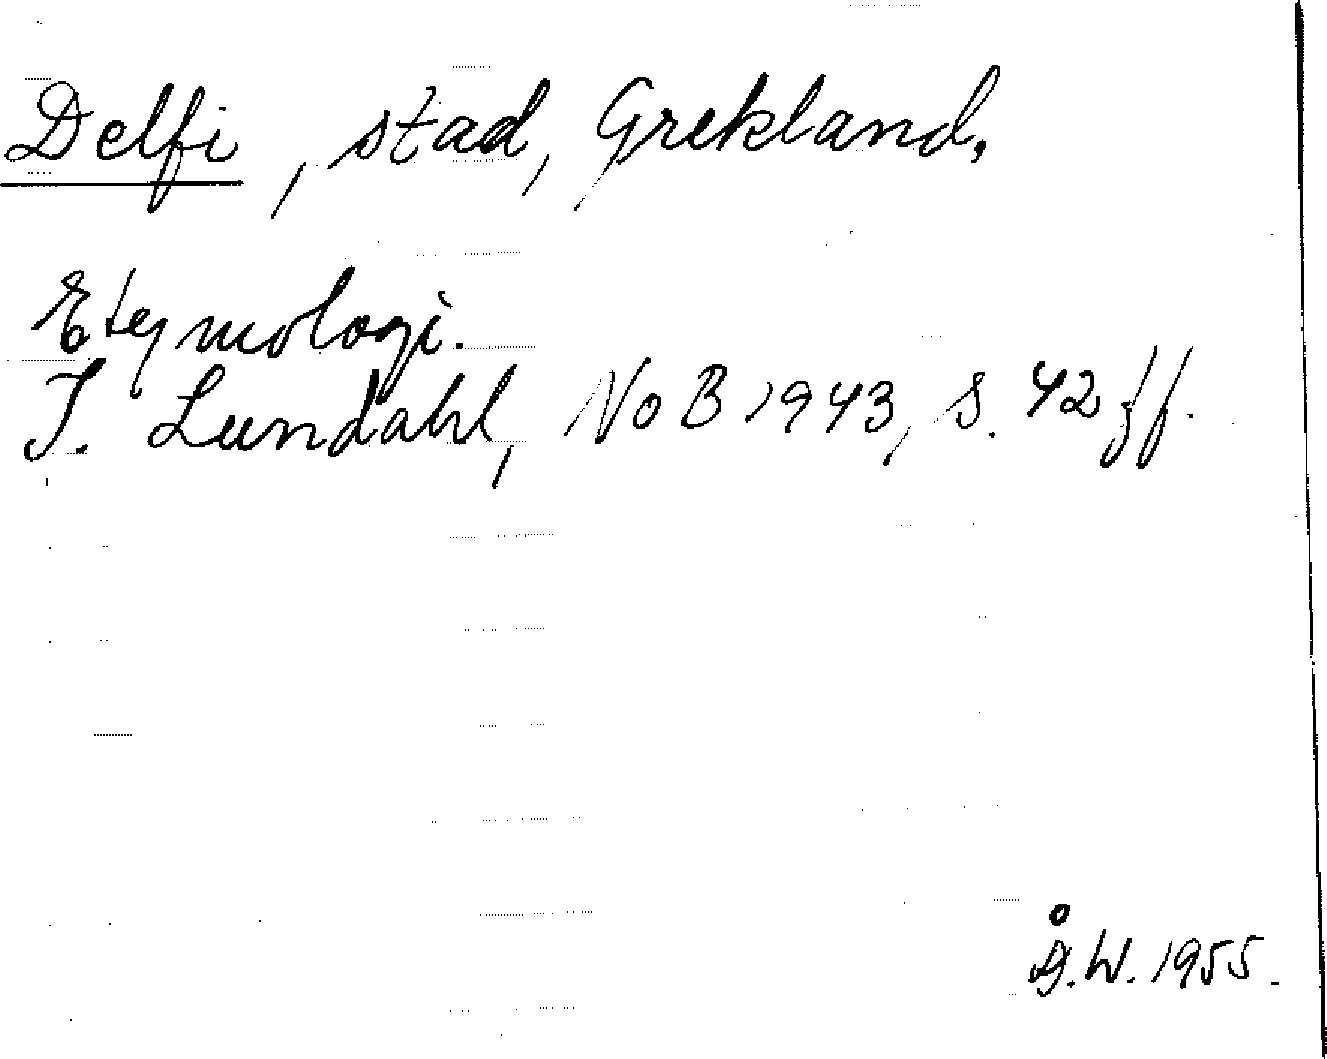 Delfi, stad, Grekland.
Etymologi.
I. Lundahl, NoB 1943, s. 42 ff.
Å.W. 1955.